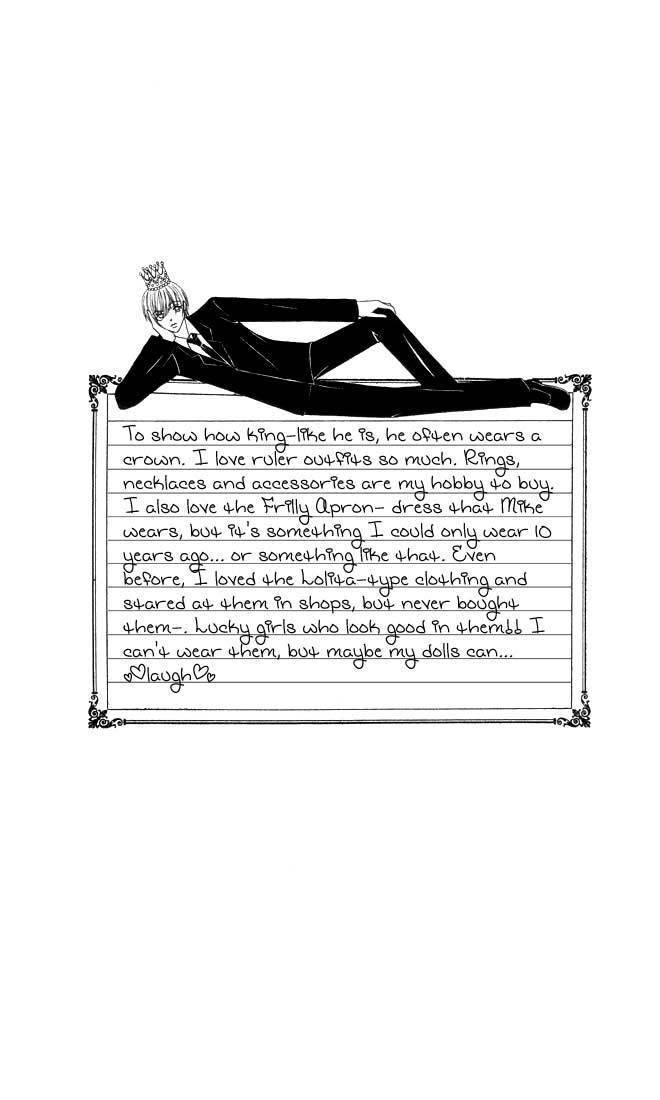 To show how king-like he is, he often wears a
crown. I love ruler outfits so much. Rings,
necklaces and accessories are my hobby to buy.
I also love the Frilly Apron- dress that Mike
wears, but it's something I could only wear 10
years ago... or something like that. Even
before, I loved the Lolita-type clothing and
stared at them in shops, but never bought
them-. Lucky girls who look good in them!! I
can't wear them, but maybe my dolls can...
laugh